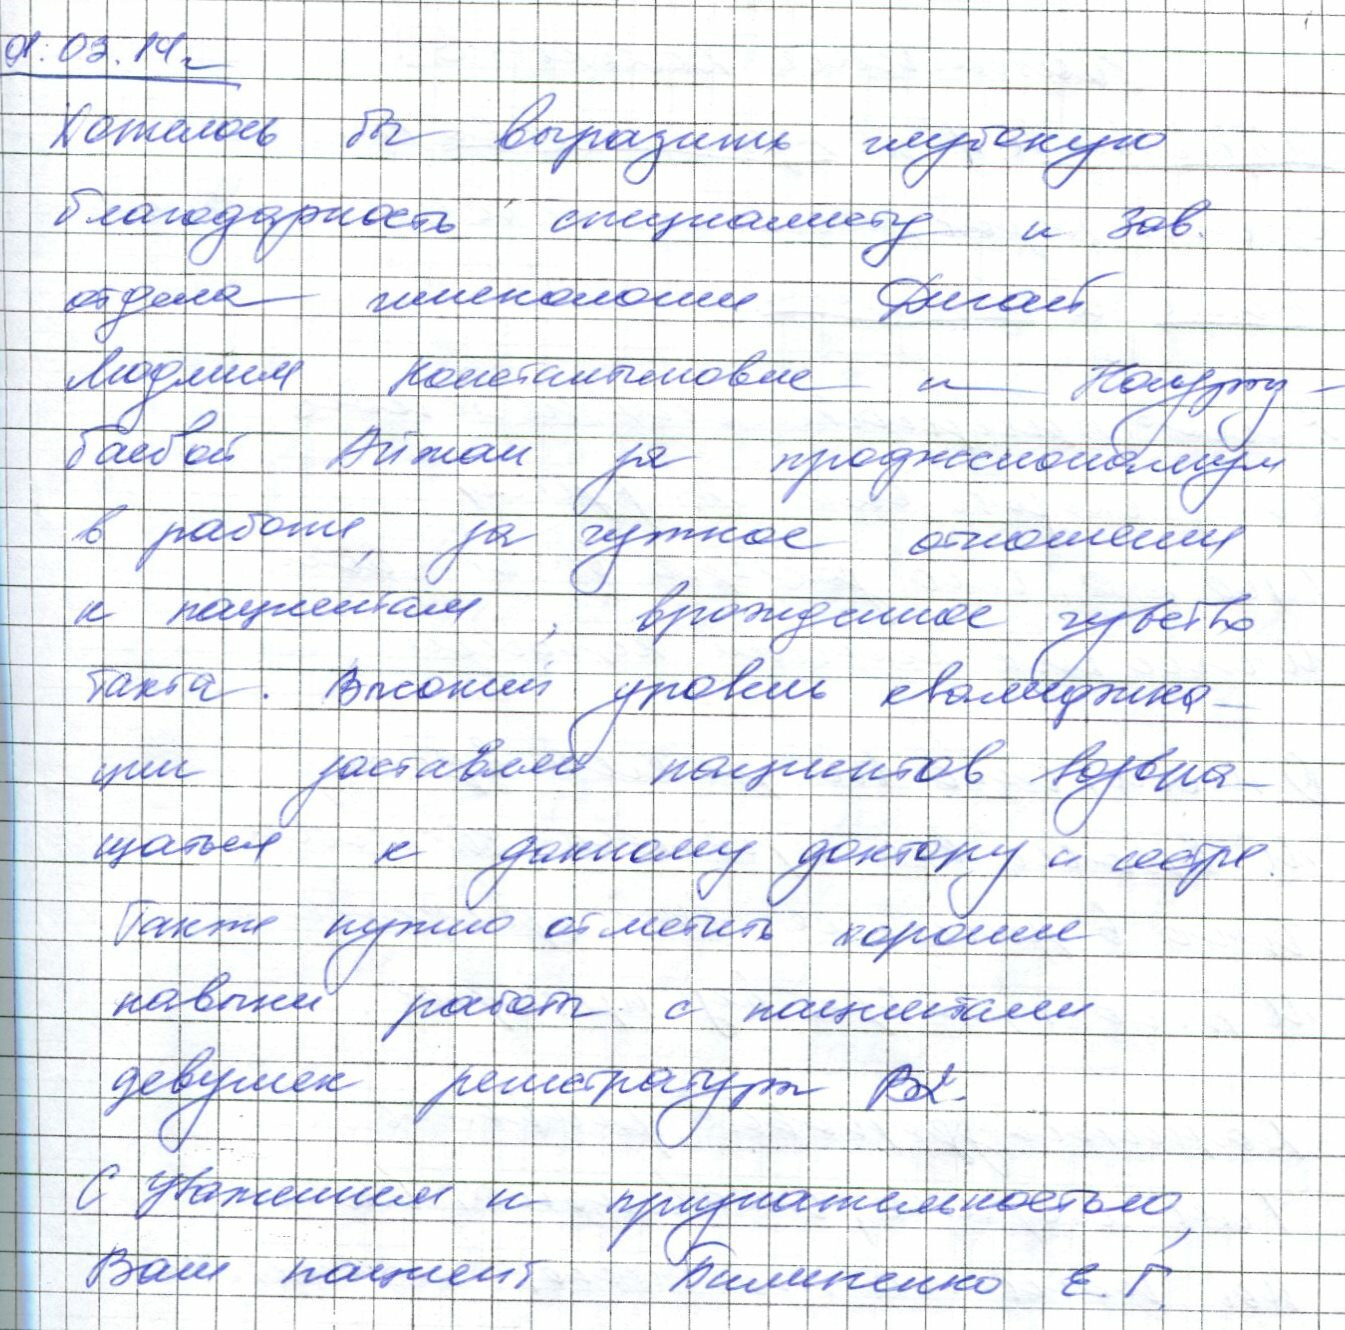 01.03.14г
Хотелось бы выразить глубокую
благодарность специалисту и зав.
отдела гинекологии Дигай
Людмиле Константиновне и Колдры-
баевой Айжан за профессионализм
в работе, за чуткое отношение
к пациентам, врожденное чувство
такта. Высокий уровень квалифика-
ции заставляет пациентов возвра-
щаться к данному доктору и сестре.
Также нужно отметить хорошие
навыки работы с пациентами
девушек регистратуры
С уважением и признательностью,
Ваш пациент Билиненко Е.Г.